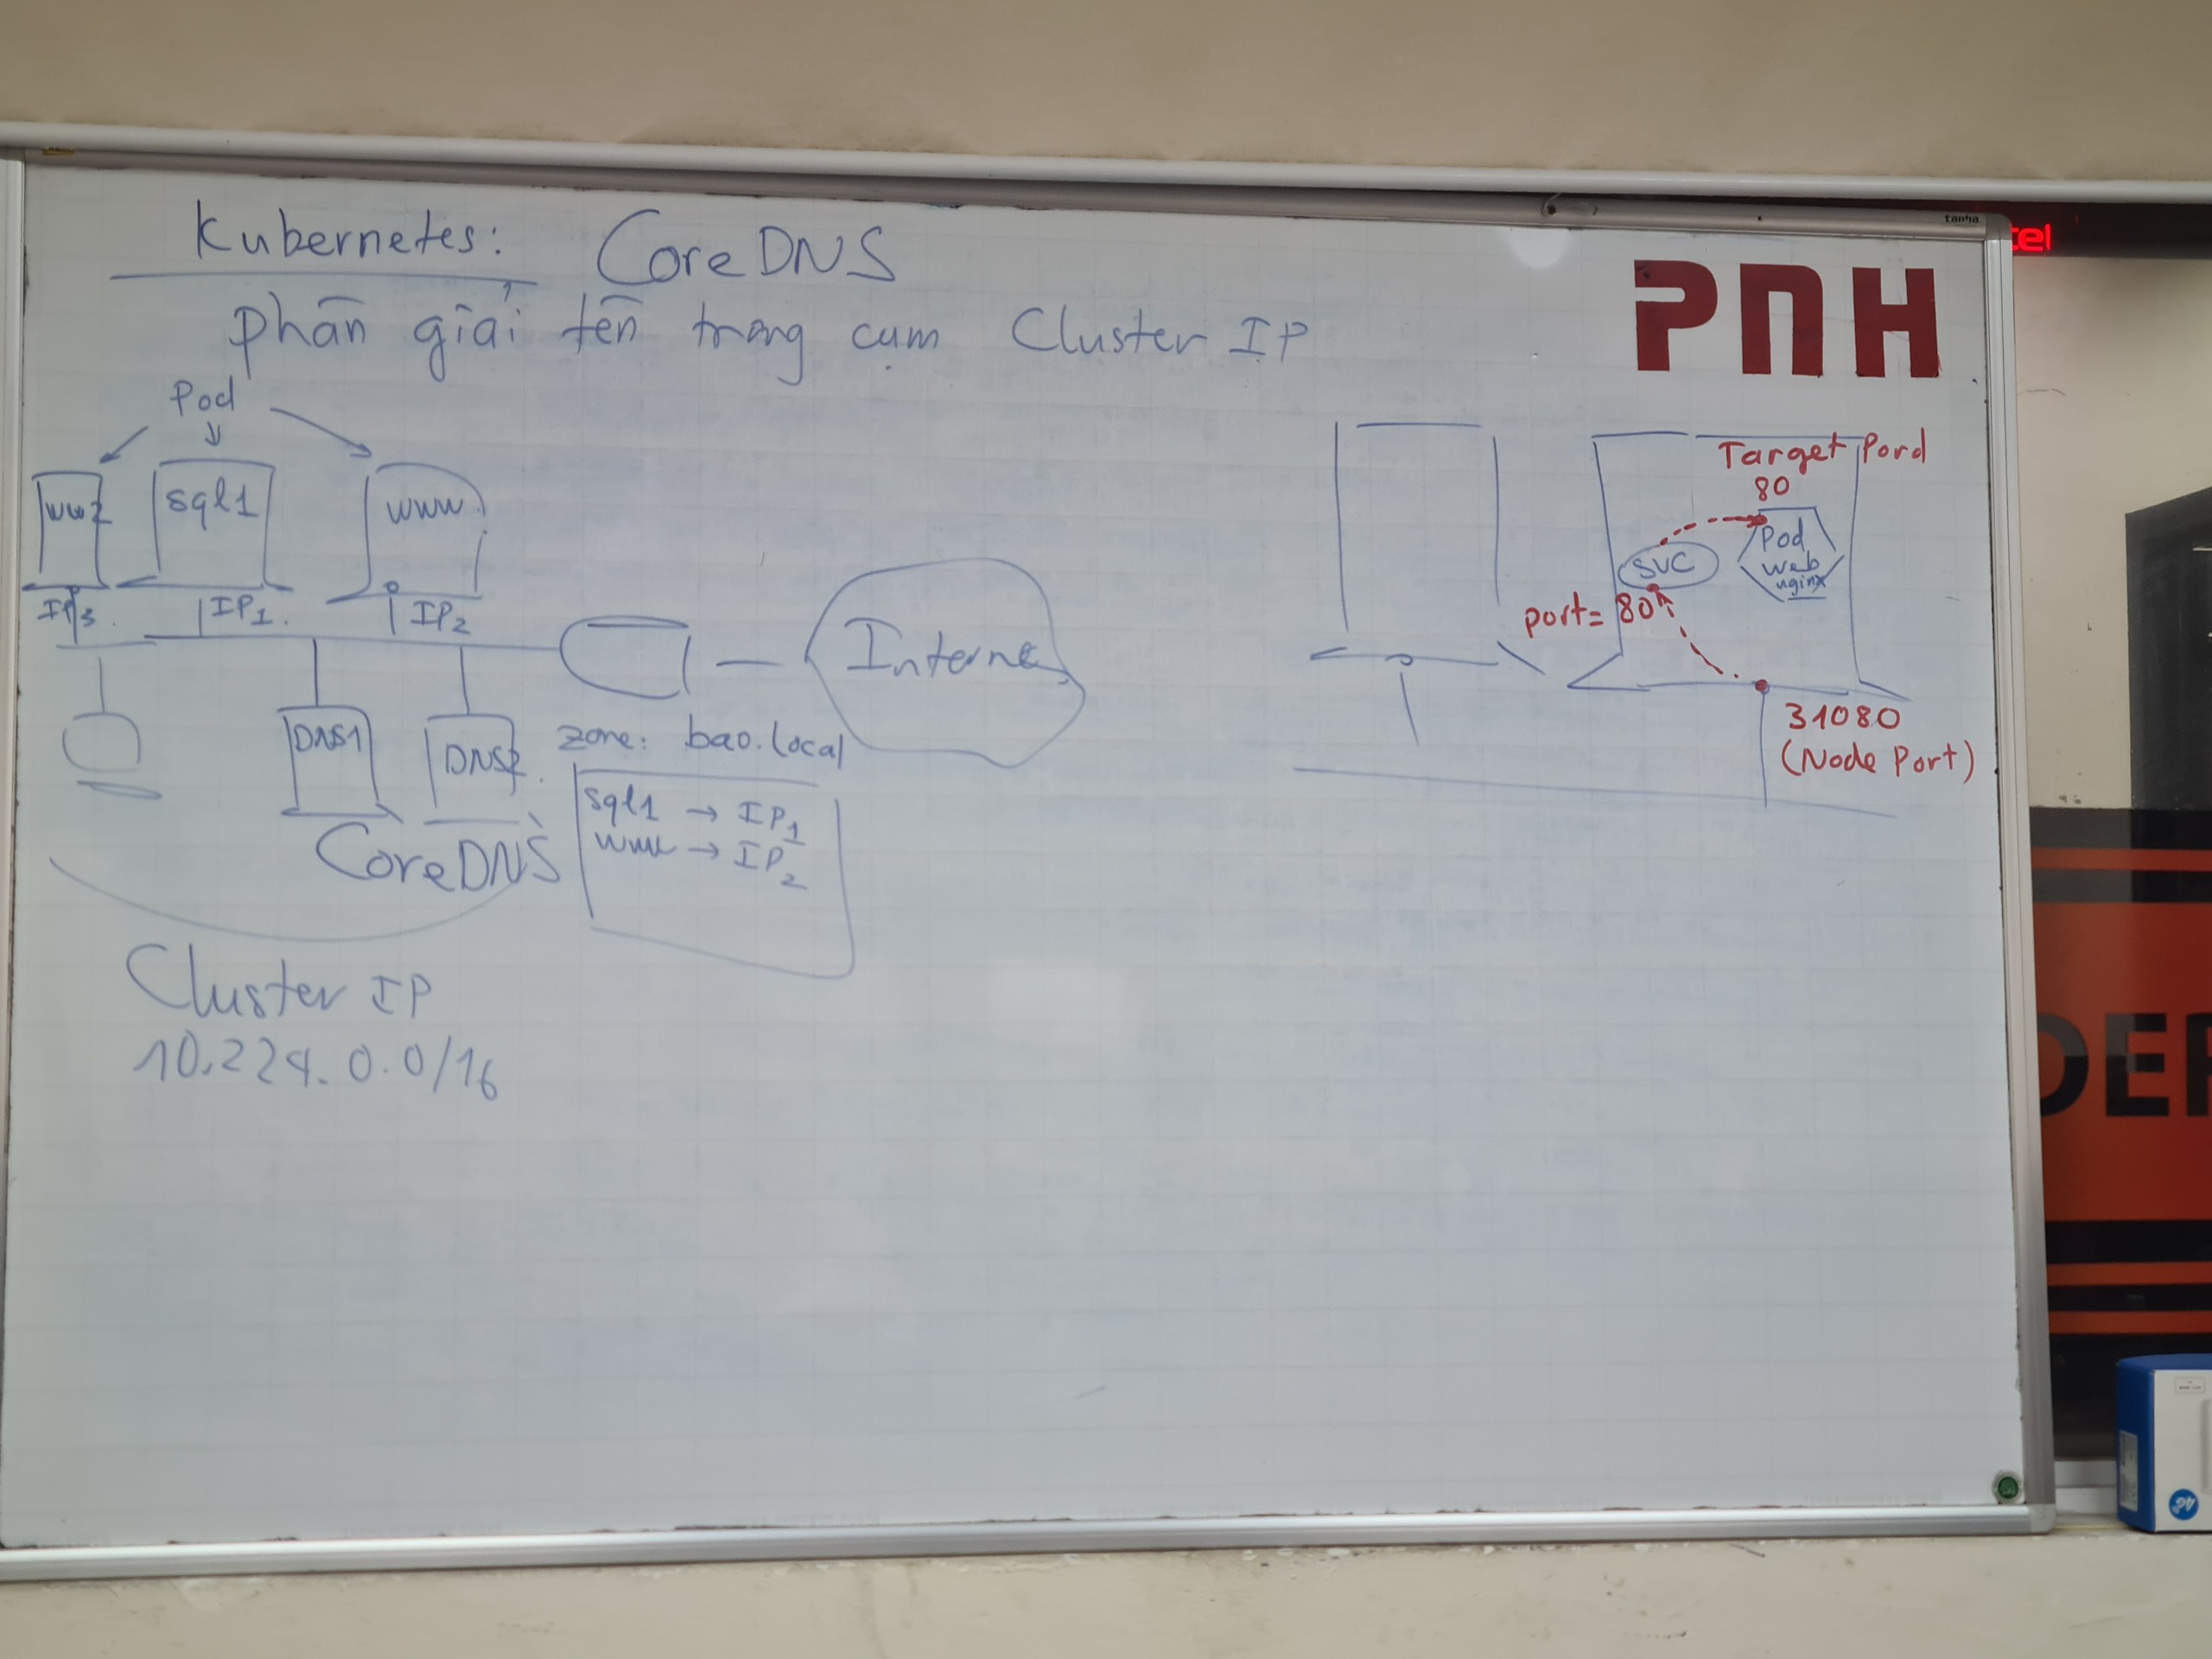 Kubernetes: CoreDNS
phân giải tên trong cụm Cluster IP
Pod
ww2
sql1
www
IP3.
IP1.
IP2
Internet
DNS1
DNS2
CoreDNS
zone: bao.local
sql1 → IP1
www → IP2
Cluster IP
10.224.0.0/16
PNH
Target Pord
80
Pod
web
nginx
SVC
port= 80
31080
(Node Port)
tanha
tel
DER
4G